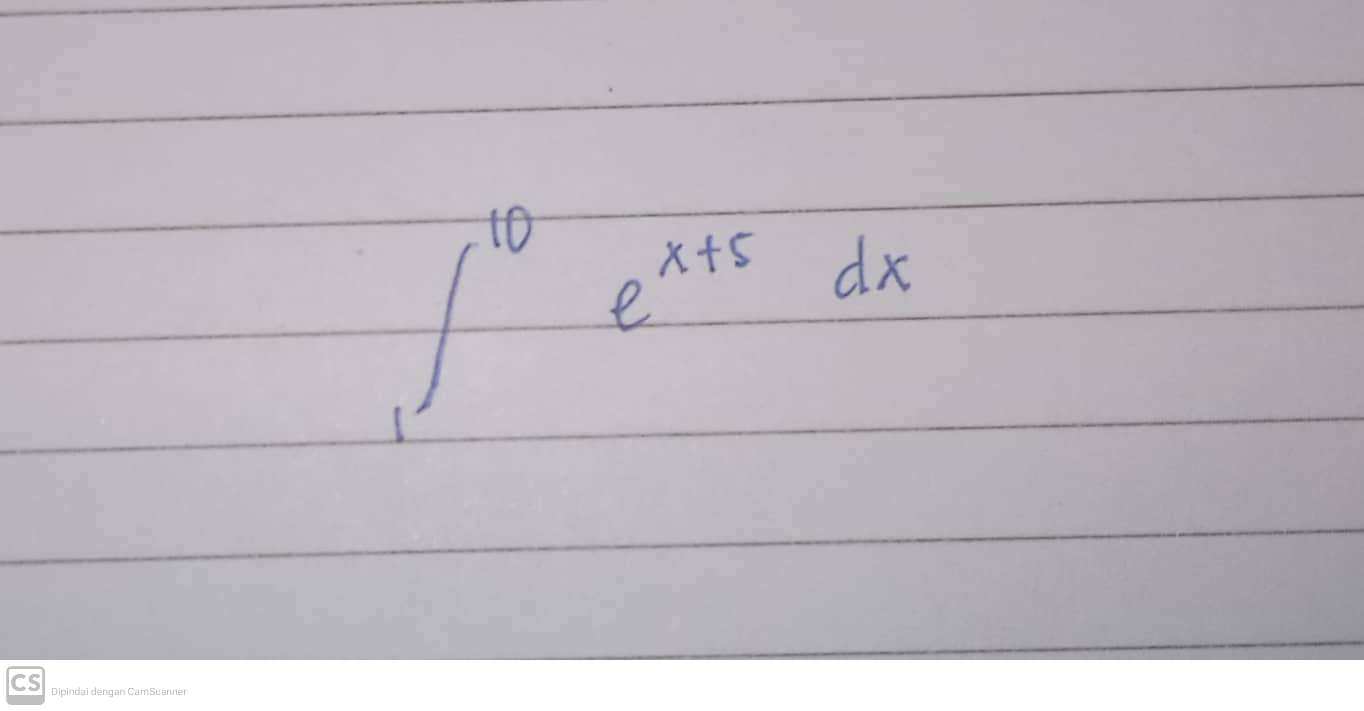 ∫₁¹⁰ e^{x+5} dx
CS Dipindai dengan CamScanner